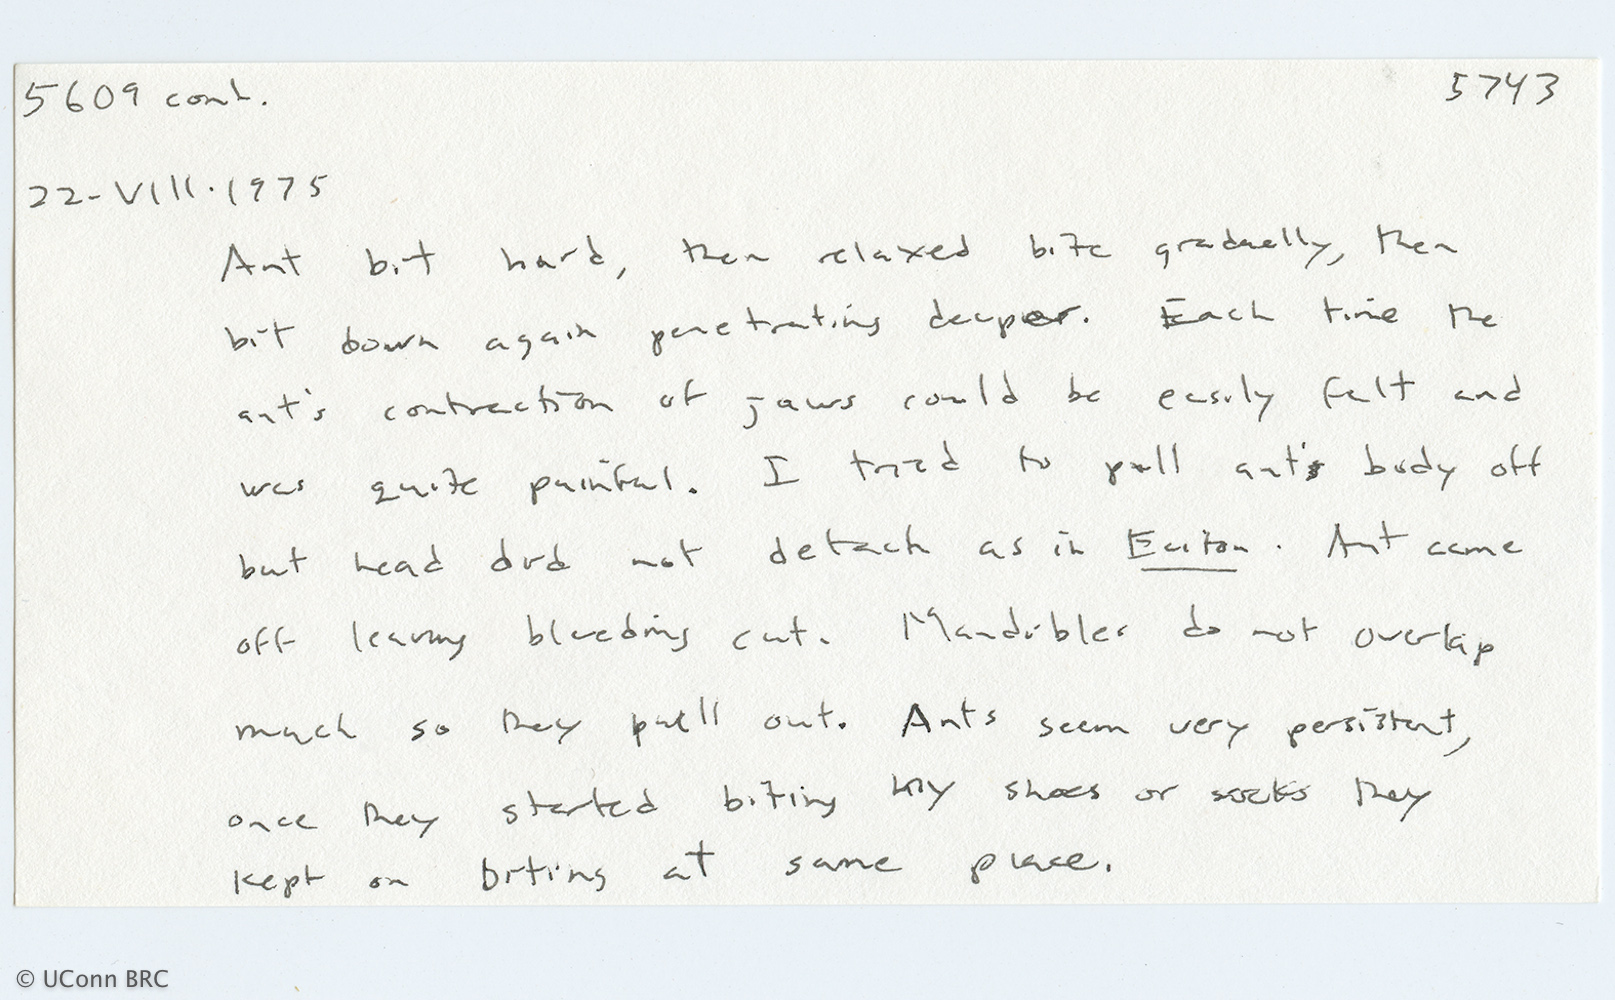 5609 cont.
5743
22-VIII-1975
Ant bit hard, then relaxed bite gradually, then
bit down again penetrating deeper. Each time the
ant's contraction of jaws could be easily felt and
was quite painful. I tried to pull ant's body off
but head did not detach as in Eciton. Ant came
off leaving bleeding cut. Mandibles do not overlap
much so they pull out. Ants seem very persistent,
once they started biting my shoes or socks they
kept on biting at same place.
© UConn BRC